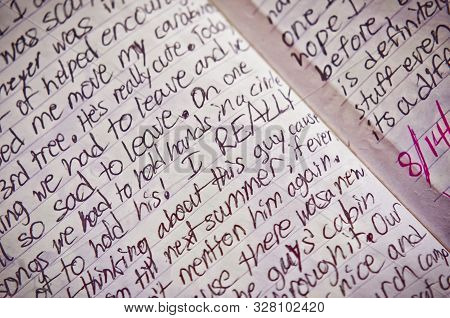 I
was scar
meyer was in
of helped encour
ed me move my
3rd tree. He's really cute. Toda
ing we had to leave and we
so sad to leave. On one
songs we had to hold hands in a circle
got to hold his. I REALLY
thinking about this guy cause
til next summer, if ever
n't mention him again.
use there was a new
the guys' cabin
through it. Our
nice and
rch camp
had
one
hope I
before,
is definitely
stuff even
its a diff
8/14/